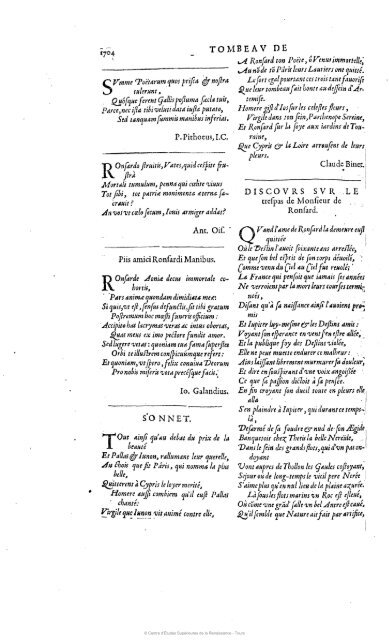 1704
TOMBEAV DE
SVmme Poëtarum quos prisca & nostra
tulerunt,
Quósque ferent Gallis postuma sæcla tuis,
Parce, nec ista tibi veluti data iusta putato,
Sed tanquam summis manibus inferias.
P. Pithoeus, I.C.
ROnsarde struitis, Vates, quid cespite fru-
strà
Mortali tumulum, penna qui cœlite viuus
Tot sibi, tot patriæ monimenta æterna sa-
crauit?
An vot ve cælo satum, Iouis armiger addas?
Ant. Oif.
Piis amici Ronsardi Manibus.
ROnsarde Aoniæ decus immortale co-
hortis,
Pars animæ quondam dimidiata meæ:
Si quis, vt est, sensus defunctis, sis tibi gratum
Postremum hoc mæsti funeris officium:
Accipe has lacrymas veras ac intus obortas,
Quas meus ex imo pectore fundit amor.
Sed lugere vetas: quoniam tua fama superstes
Orbi te illustrem conspicuúmque refers:
Et quoniam, vt spero, felix conuiua Deorum
Pro nobis miseris vota precésque facis.
Io. Galandius.
SONNET.
TOut ainsi qu'au debat du prix de la
beauté
Et Pallas & Iunon, rallumans leur querelle,
Au chois que fit Pâris, qui nomma la plus
belle,
Quitterent à Cypris le loyer merité,
Homere aussi combien qu'il eust Pallas
chanté:
Virgile que Iunon vit animé contre elle,
A Ronsard ton Poëte, ô Venus immortelle,
Au nõ de tõ Pâris leurs Lauriers ont quitté.
Le sort egal pourtant ces trois tant fauorise
Que leur tombeau fait honte au dessein d'Ar-
temise.
Homere gist d'Ios sur les celestes fleurs,
Virgile dans ton sein, Parthenope Sereine,
Et Ronsard sur la soye aux iardins de Tou-
raine,
Que Cypris & la Loire arrousent de leurs
pleurs.
Claude Binet.
DISCOVRS SVR LE
trespas de Monsieur de
Ronsard.
QVand l'ame de Ronsard la demeure eust
quittée
Où le Destin l'auoit soixante ans arrestée,
Et que son bel esprit de son corps déuoilé,
Comme venu du Ciel au Ciel fut reuolé:
La France qui pensoit que iamais ses années
Ne verroient par la mort leurs courses termi-
nées,
Disant qu'à sa naissance ainsi l'auoient pro-
mis
Et Iupiter luy-mesme & les Destins amis:
Voyant son esperance en vent s'en estre allée,
Et la publique foy des Destins violée,
Elle ne peut muette endurer ce malheur:
Ains laissant librement murmurer sa douleur,
Et dire en souspirant d'vne voix angoissée
Ce que sa passion dictoit à sa pensée.
En fin voyant son dueil toute en pleurs elle
alla
S'en plaindre à Iupiter, qui durant ce temps-
là,
Desarmé de sa foudre & nud de son Ægide
Banquetoit chez Thetis la belle Nereide,
Dans le sein des grands flots, qui d'vn pas on-
doyant
Vont aupres de Thollon les Gaules costoyant,
Sejour où de long-temps le vieil pere Nerée
S'aime plus qu'en nul lieu de la plaine azurée.
Là sous les flots marins vn Roc est esleué,
Où cõme vne grãd' salle vn bel Antre est caué,
Qu'il semble que Nature ait fait par artifice,
© Centre d'Études Supérieures de la Renaissance - Tours